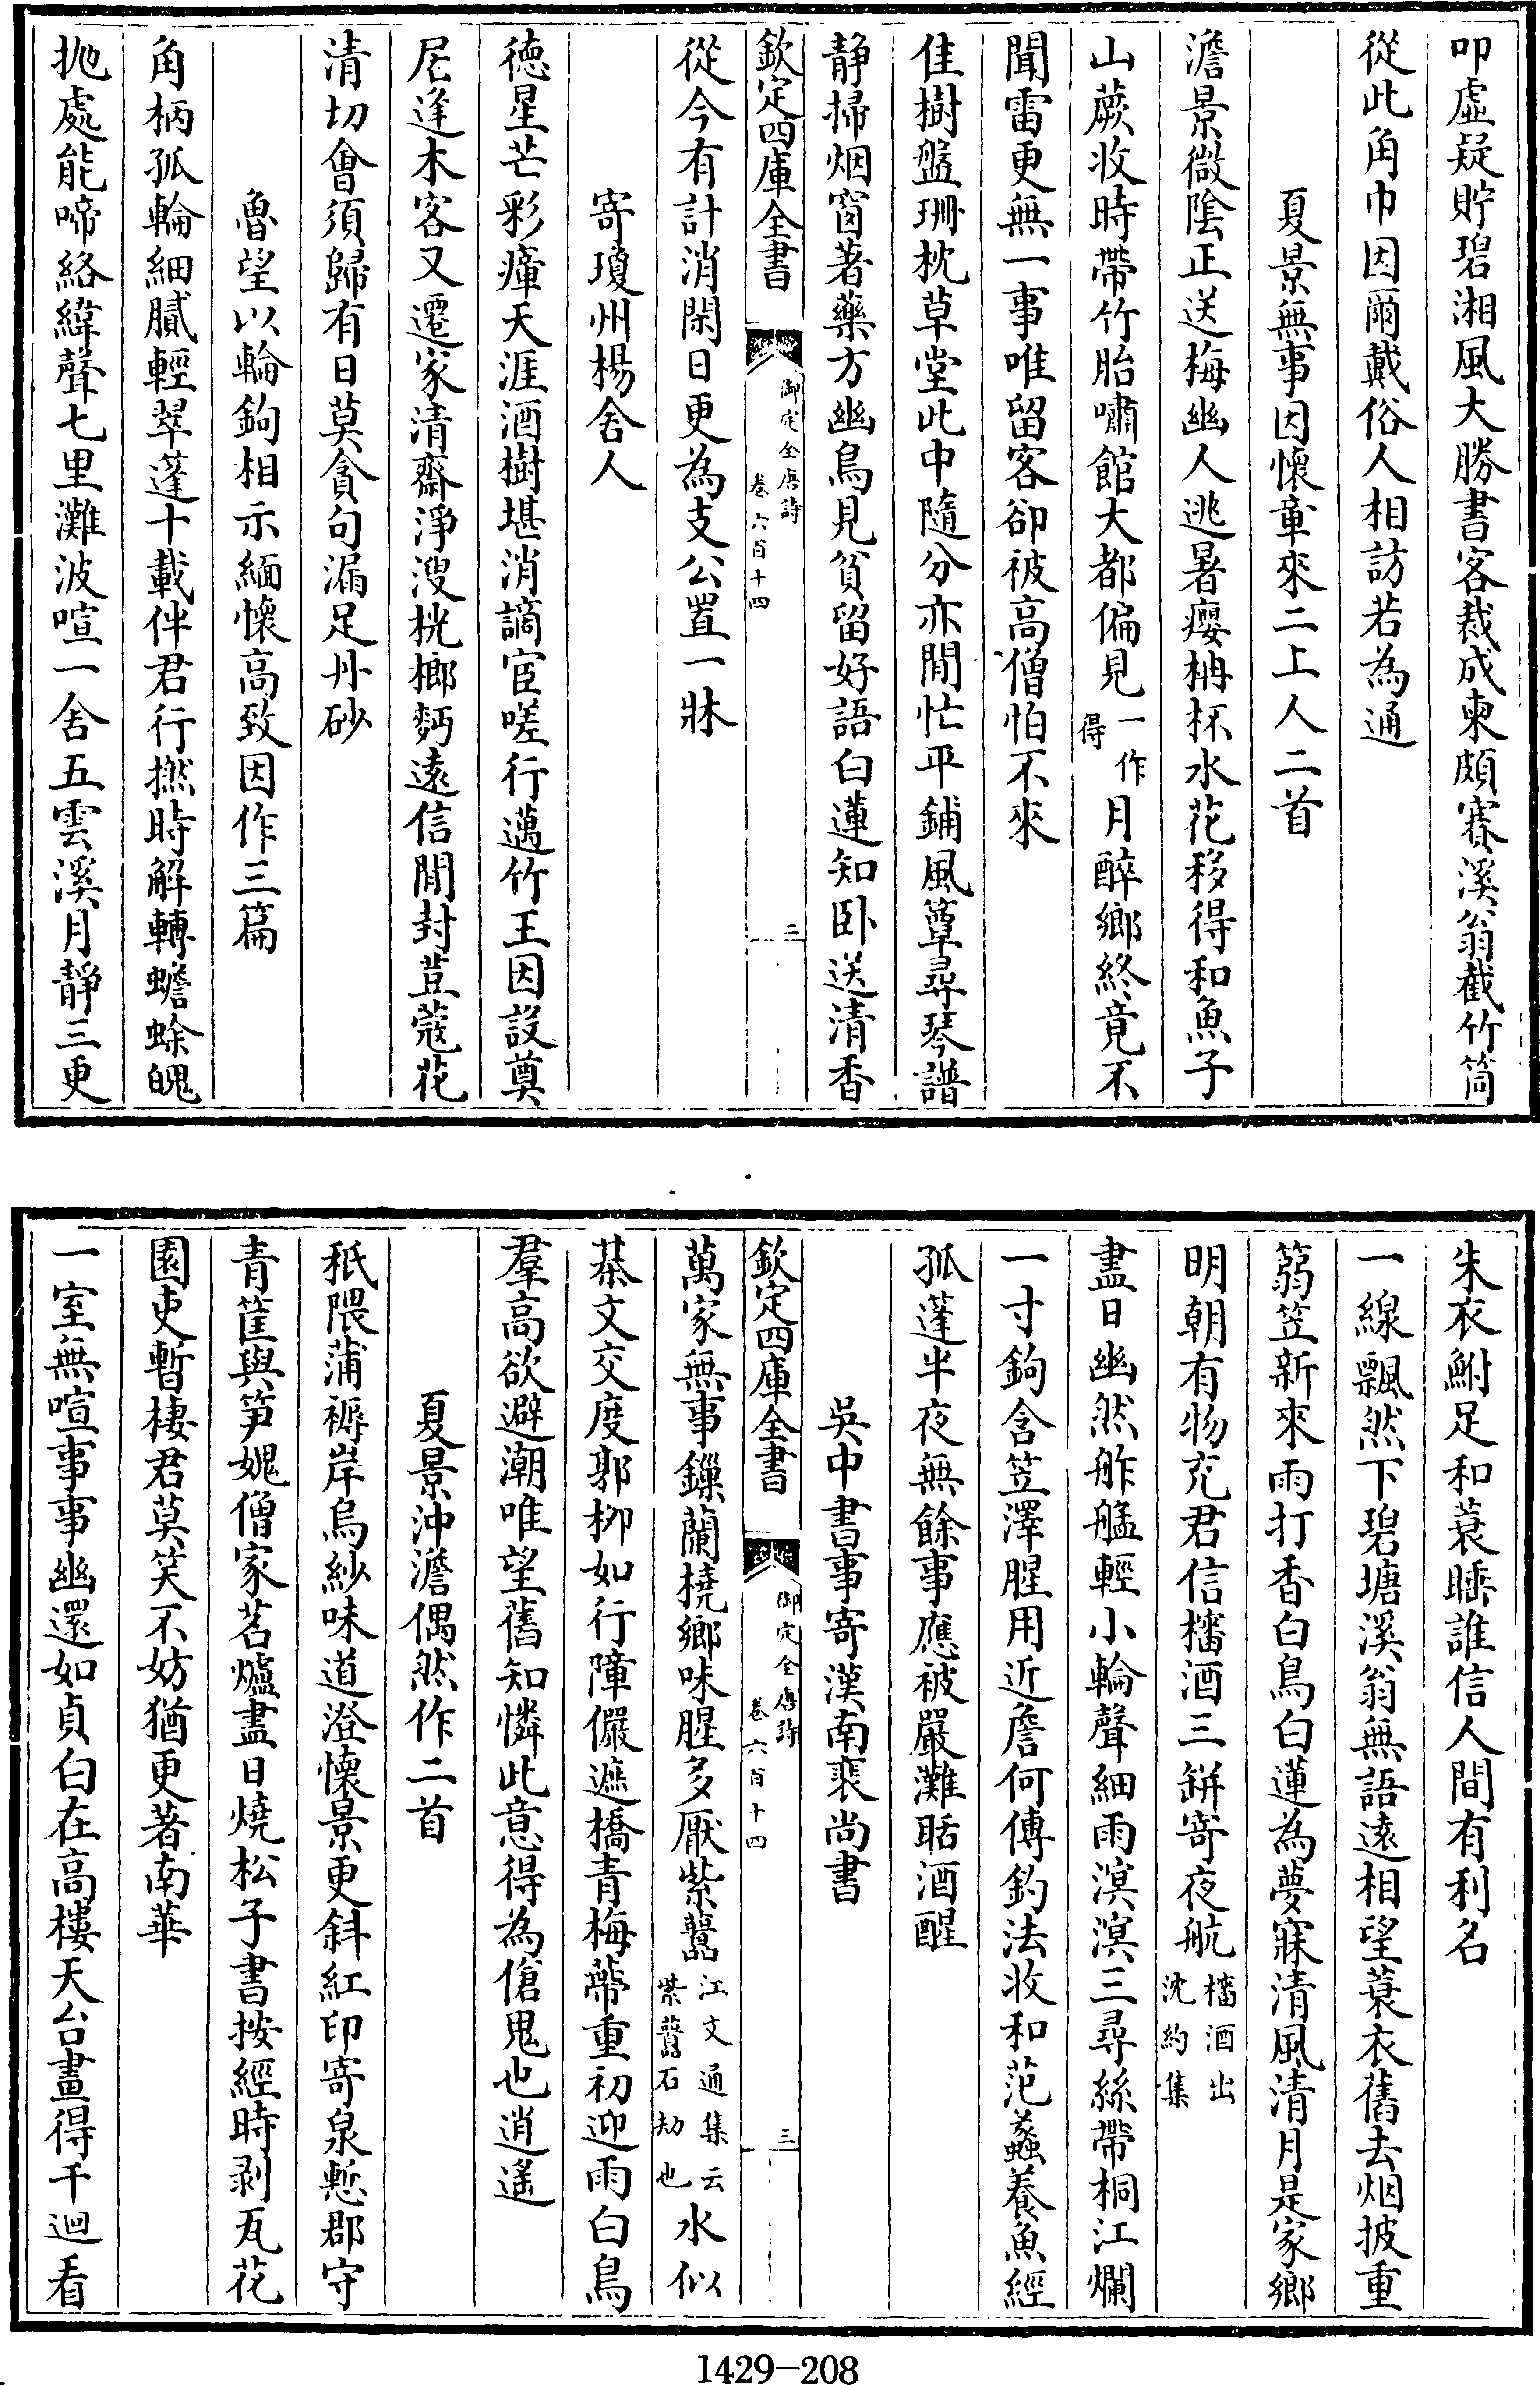 叩虛疑貯碧湘風大勝書客裁成柬頗賽溪翁截竹筒
從此角巾因爾戴俗人相訪若為通
夏景無事因懷章來二上人二首
澹景微陰正送梅幽人逃暑癭柟杯水花移得和魚子
山蕨收時帶竹胎嘯館大都偏見一作得月醉鄉終竟不
聞雷更無一事唯留客卻被高僧怕不來
佳樹盤珊枕草堂此中隨分亦閒忙平鋪風簟尋琴譜
靜掃烟窗著藥方幽鳥見貧留好語白蓮知卧送清香
欽定四庫全書
御定全唐詩
卷六百十四
二
從今有計消閑日更為支公置一牀
寄瓊州楊舍人
德星芒彩瘴天涯酒樹堪消謫宦嗟行邁竹王因設奠
居逢木客又遷家清齋淨溲桄榔麪遠信閒封荳蔻花
清切會須歸有日莫貪句漏足丹砂
魯望以輪鉤相示緬懷高致因作三篇
角柄孤輪細膩輕翠篷十載伴君行撚時解轉蟾蜍魄
拋處能啼絡緯聲七里灘波喧一舍五雲溪月靜三更
朱衣鮒足和蓑睡誰信人間有利名
一線飄然下碧塘溪翁無語遠相望蓑衣舊去烟披重
篛笠新來雨打香白鳥白蓮為夢寐清風清月是家鄉
明朝有物充君信㯆酒三缾寄夜航㯆酒出沈約集
盡日幽然舴艋輕小輪聲細雨溟溟三尋絲帶桐江爛
一寸鉤含笠澤腥用近詹何傅釣法收和范蠡養魚經
孤篷半夜無餘事應被嚴灘聒酒醒
吳中書事寄漢南裴尚書
欽定四庫全書
御定全唐詩
卷六百十四
三
萬家無事鏁蘭橈鄉味腥多厭紫䖀江文通集云紫䖀石劫也水似
棊文交度郭柳如行障儼遮橋青梅蔕重初迎雨白鳥
羣高欲避潮唯望舊知憐此意得為傖鬼也逍遙
夏景沖澹偶然作二首
秖隈蒲褥岸烏紗味道澄懷景更斜紅印寄泉慙郡守
青筐與筍媿僧家茗爐盡日燒松子書按經時剥瓦花
園吏暫棲君莫笑不妨猶更著南華
一室無喧事事幽還如貞白在高樓天台畫得千迴看
1429-208